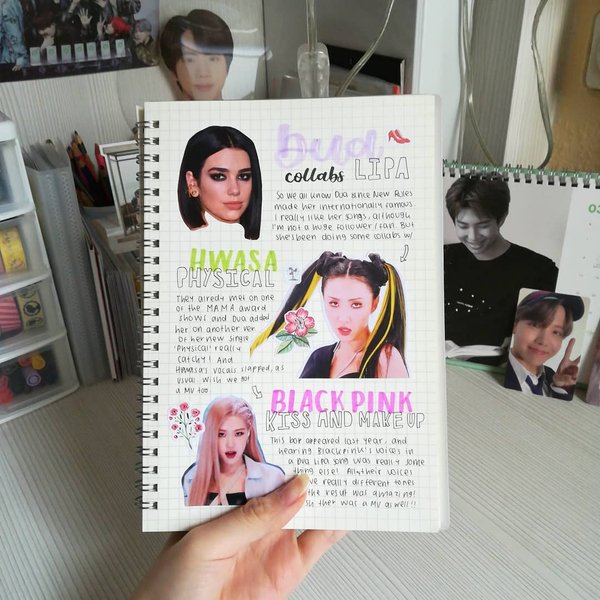 Dua
collabs LIPA
So we all know Dua since New Rules
made her internationally famous
I really like her songs, although
I'm not a huge follower/fan. But
she's been doing some collabs w/
HWASA
PHYSICAL
They already met on one
of the MAMA award
shows and Dua added
her on another ver
of her new single
'Physical' really
catchy! And
Hwasa's vocals slapped, as
usual wish we got
a MV too.
BLACKPINK
KISS AND MAKE UP
This bop appeared last year, and
hearing Blackpink's voices in
a Dua Lipa song was really some
thing else! All their voices
ve really different tones
the result was amazing!
sh ther was a MV as well!!
03